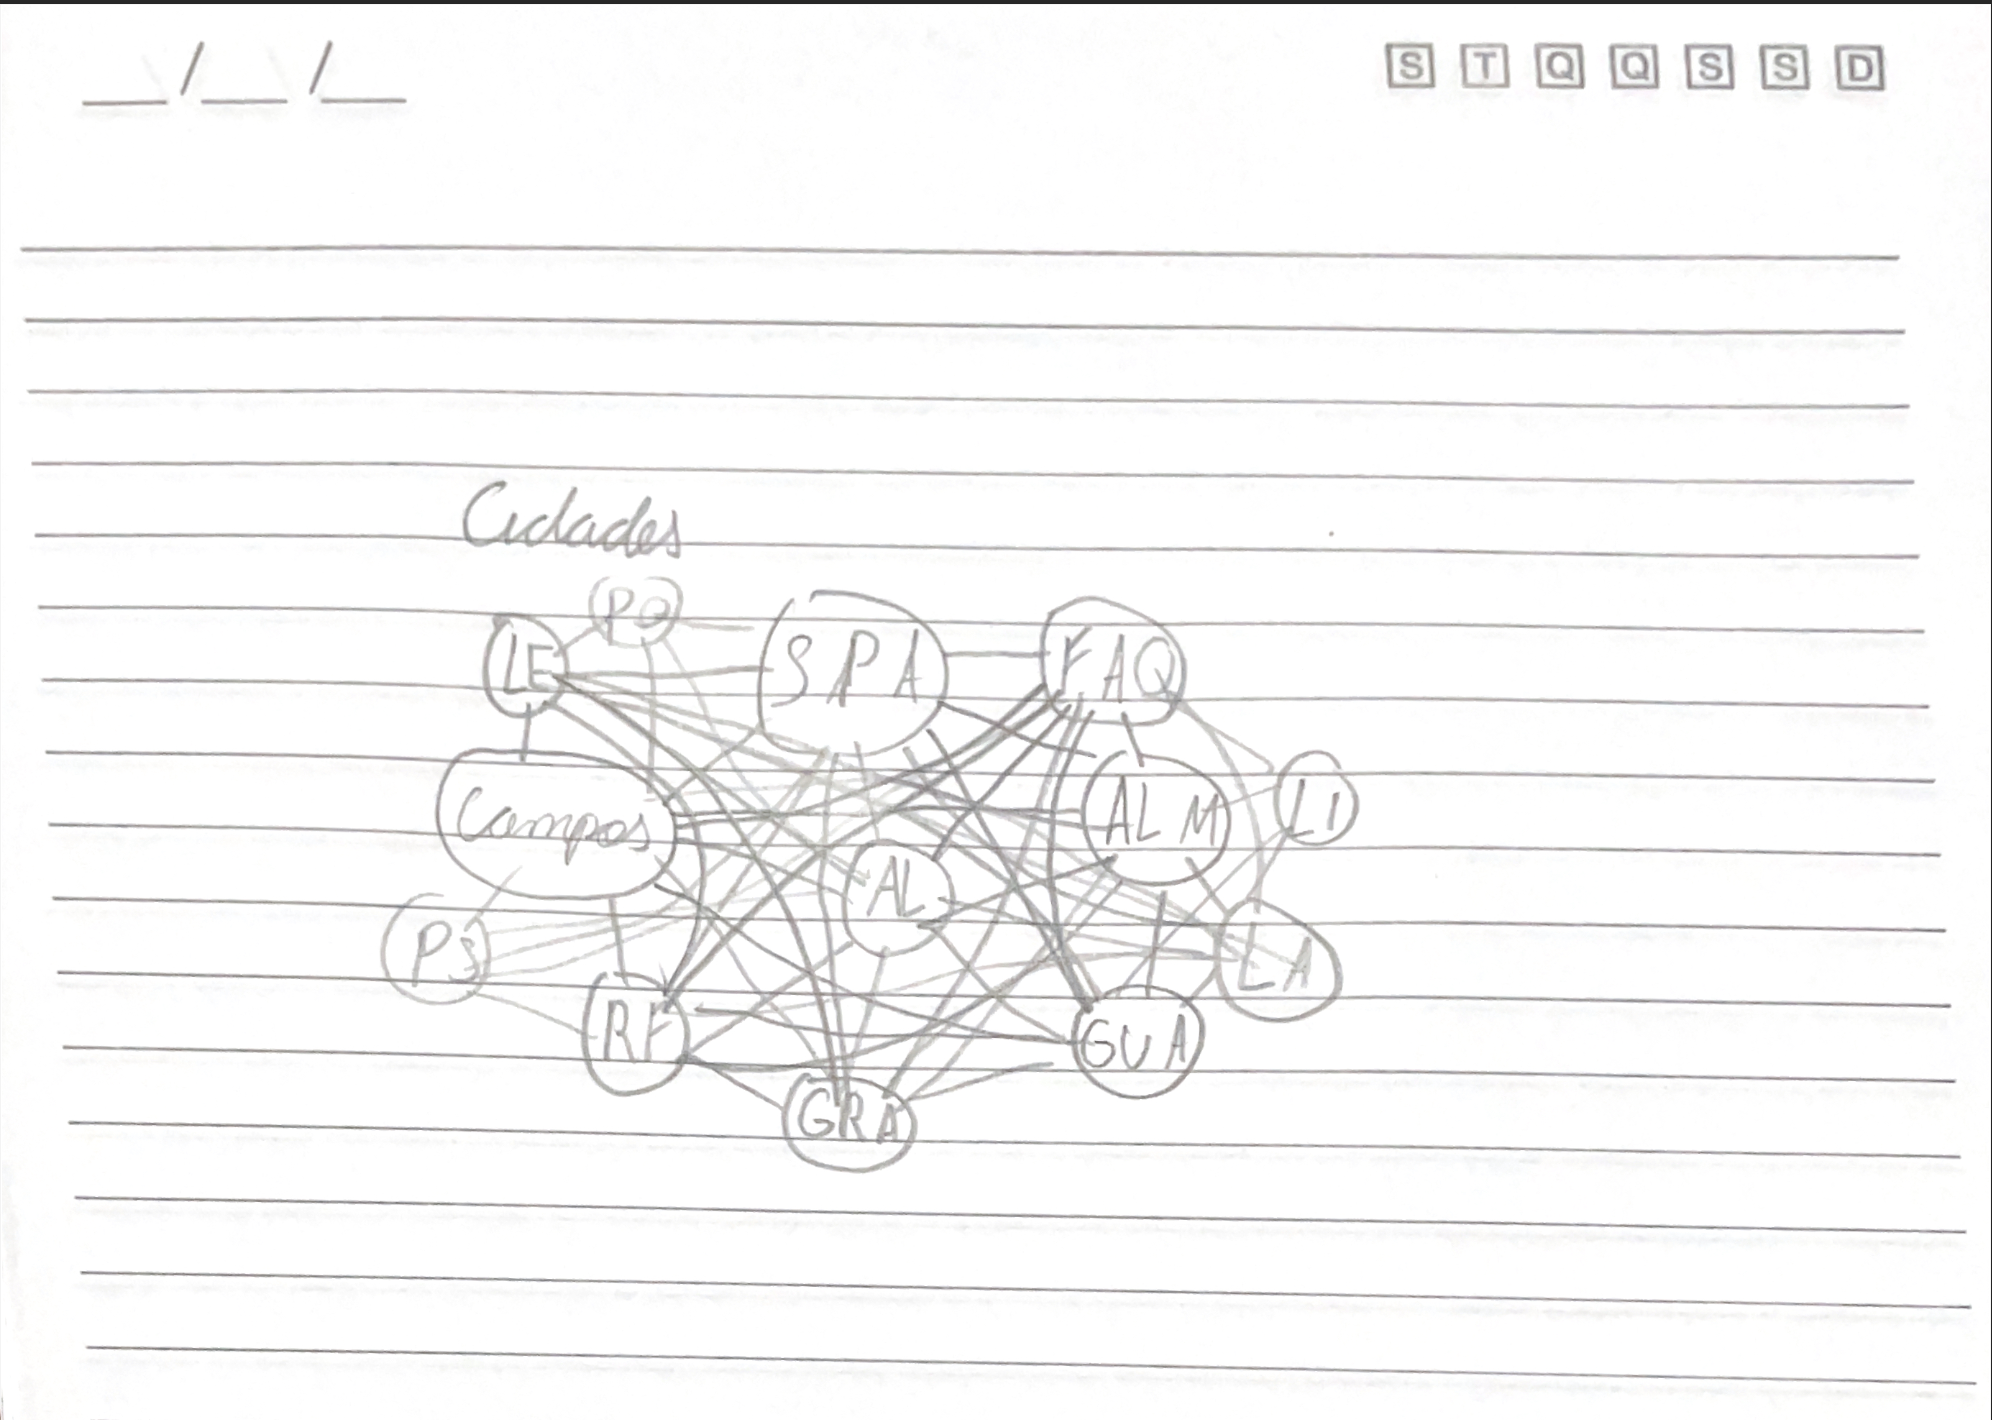 __/__/__ S T Q Q S S D
Cidades
PQ
LE SPA FAQ
Campos ALM LI
AL
PS LA
RF GUA
GRA